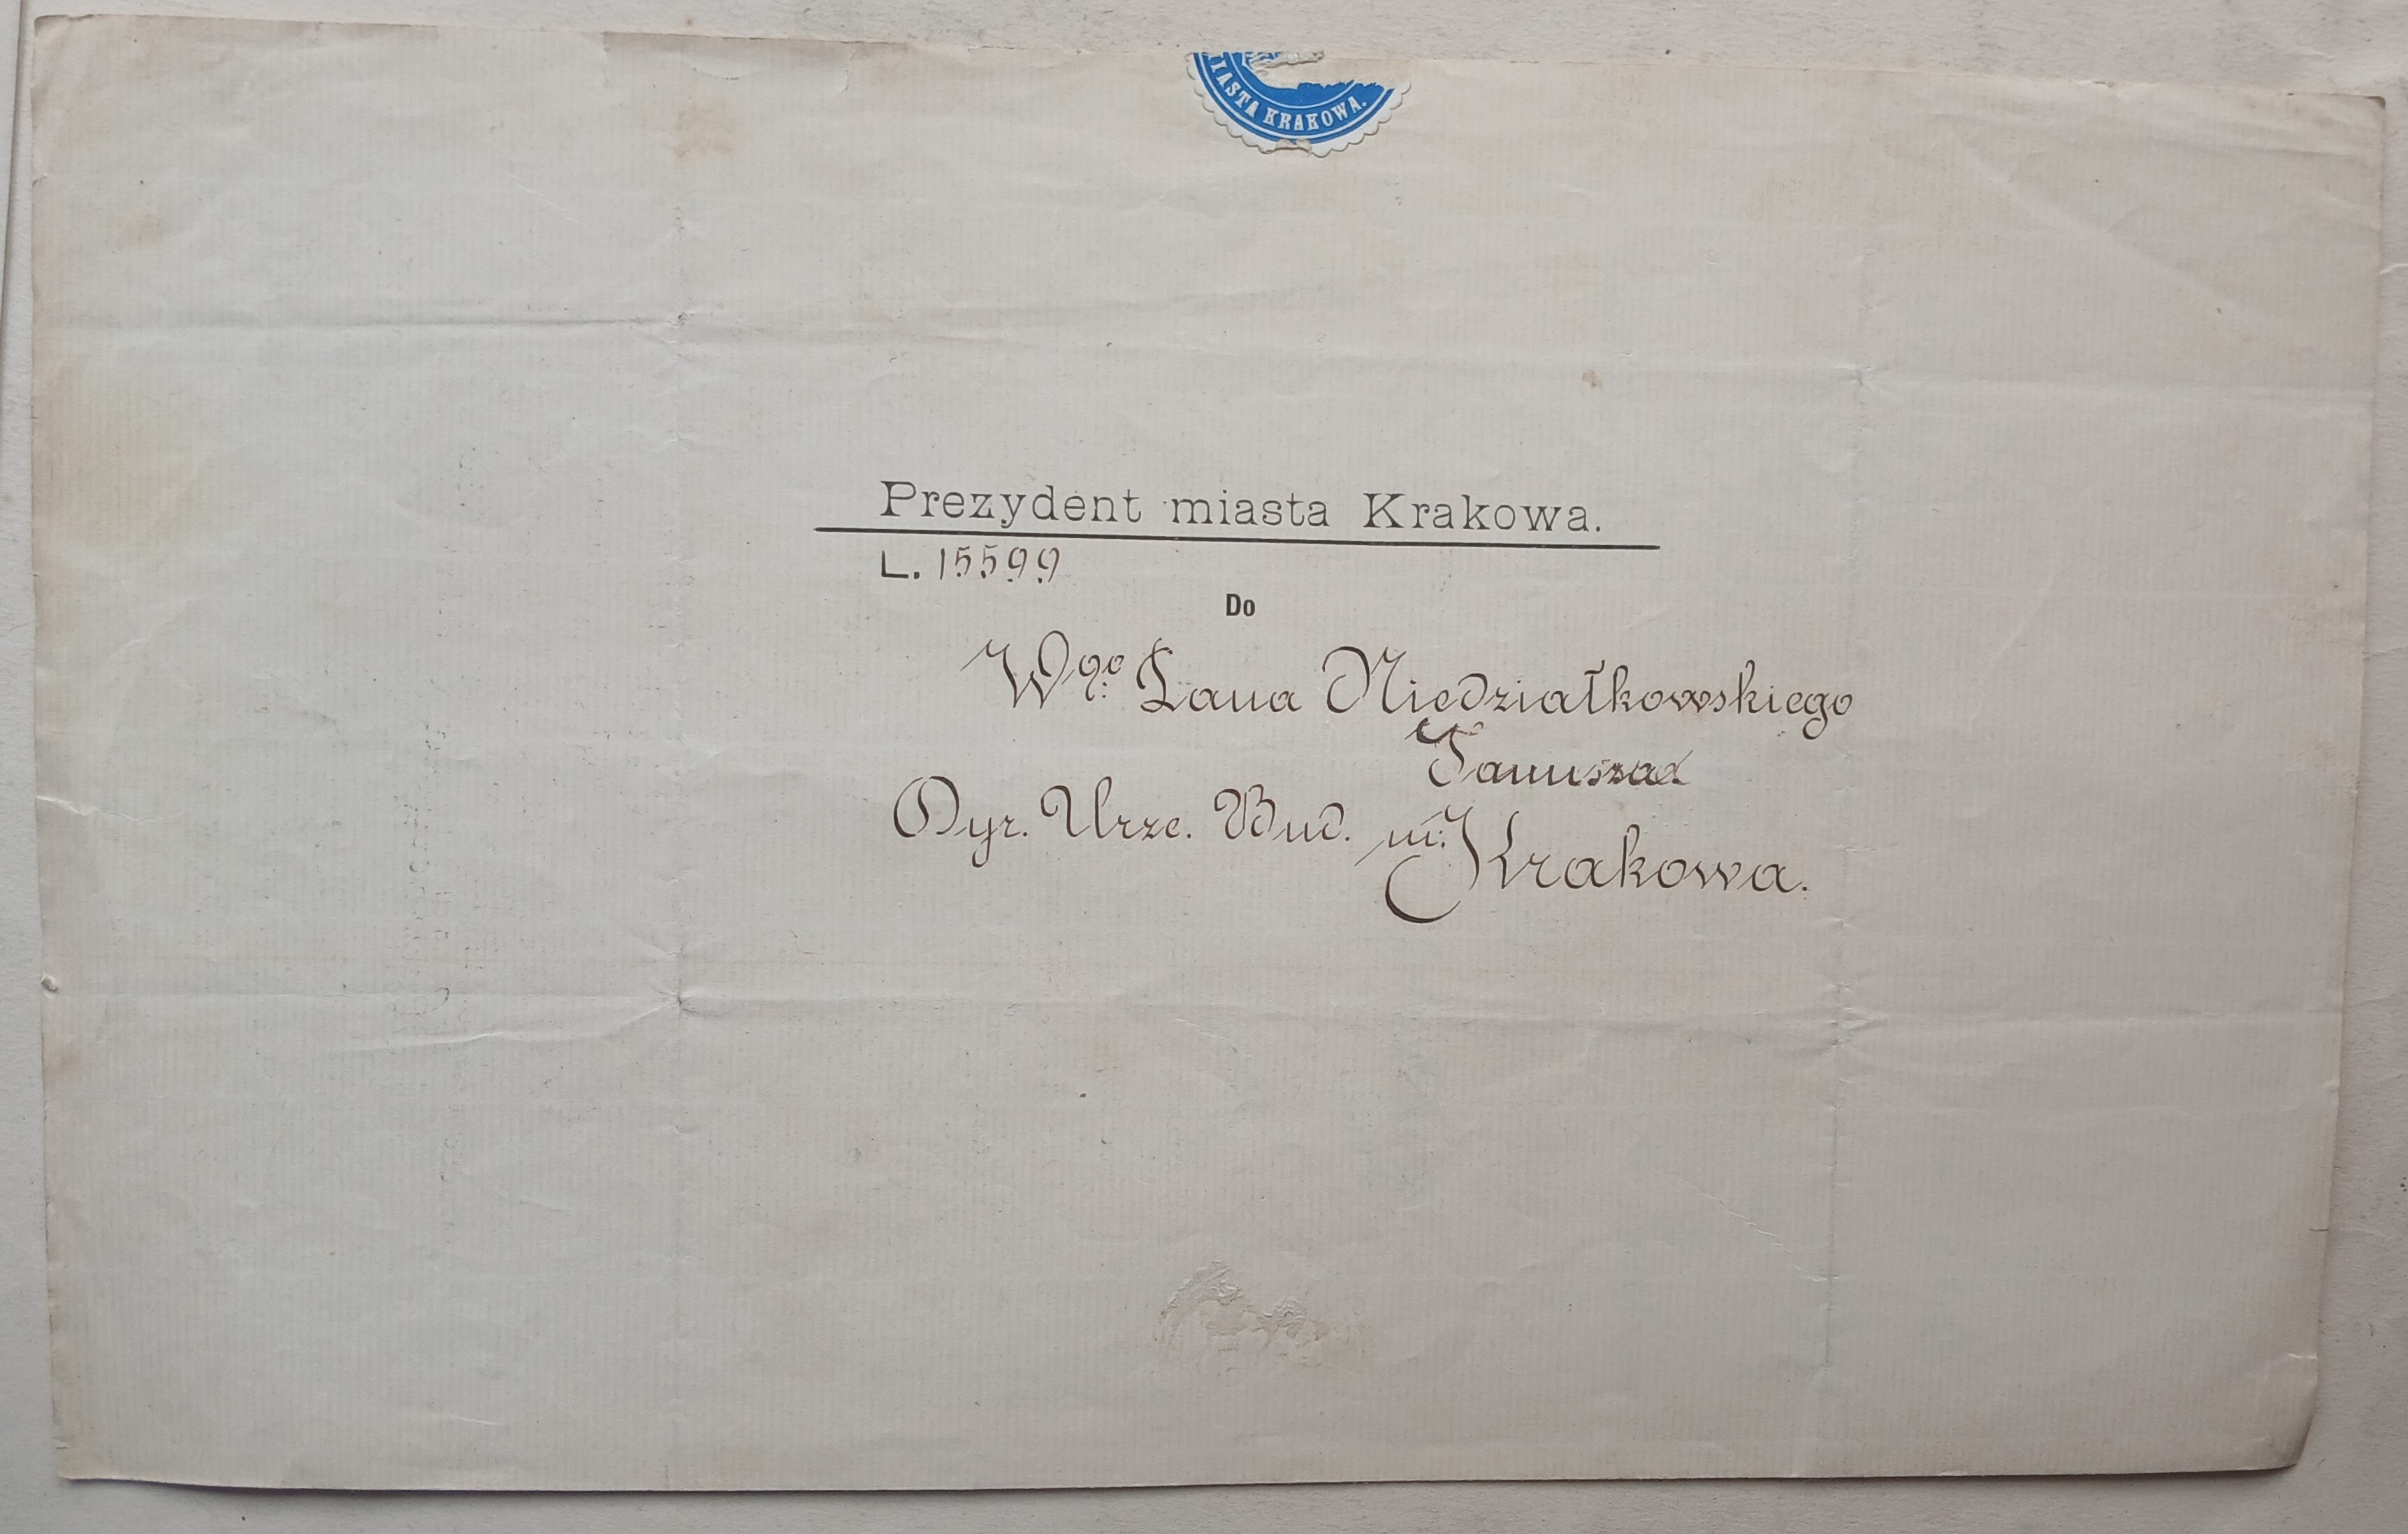 IASTA KRAKOWA.
Prezydent miasta Krakowa.
L. 15599
Do
Wgo: Pana Niedziałkowskiego
Janusza
Dyr. Urzę. Bud. m:
Krakowa.